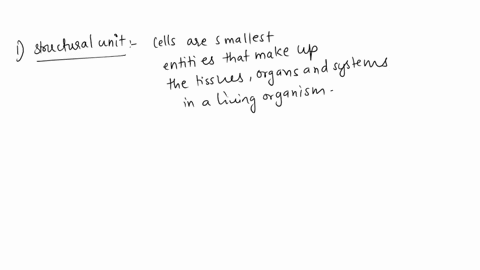 1) structural unit :- cells are smallest
entities that make up
the tissues, organs and systems
in a living organism.